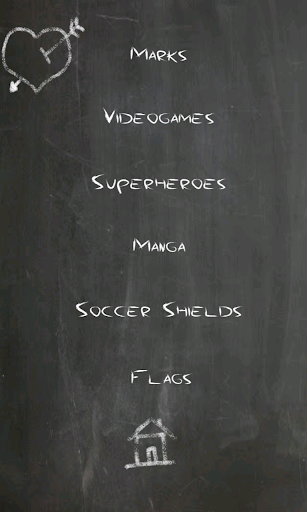 Marks
Videogames
Superheroes
Manga
Soccer Shields
Flags